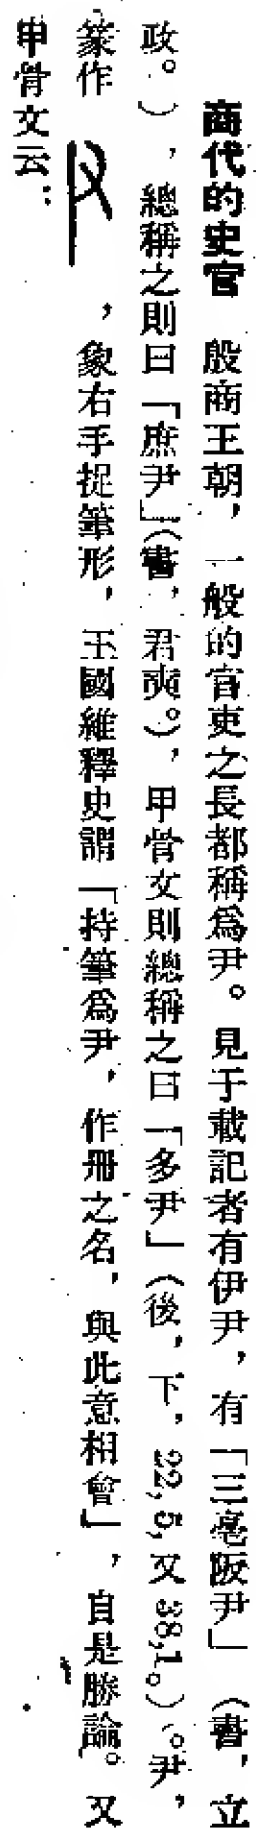 商代的史官　殷商王朝，一般的官吏之長都稱爲尹。見于載記者有伊尹，有「三亳阪尹」（書，立
政。），總稱之則曰「庶尹」（書，君奭。），甲骨文則總稱之曰「多尹」（後，下，22,5,又38,1。）。尹，
篆作　，象右手捉筆形，王國維釋史謂「持筆爲尹，作册之名，與此意相會」，自是勝論。又
甲骨文云：